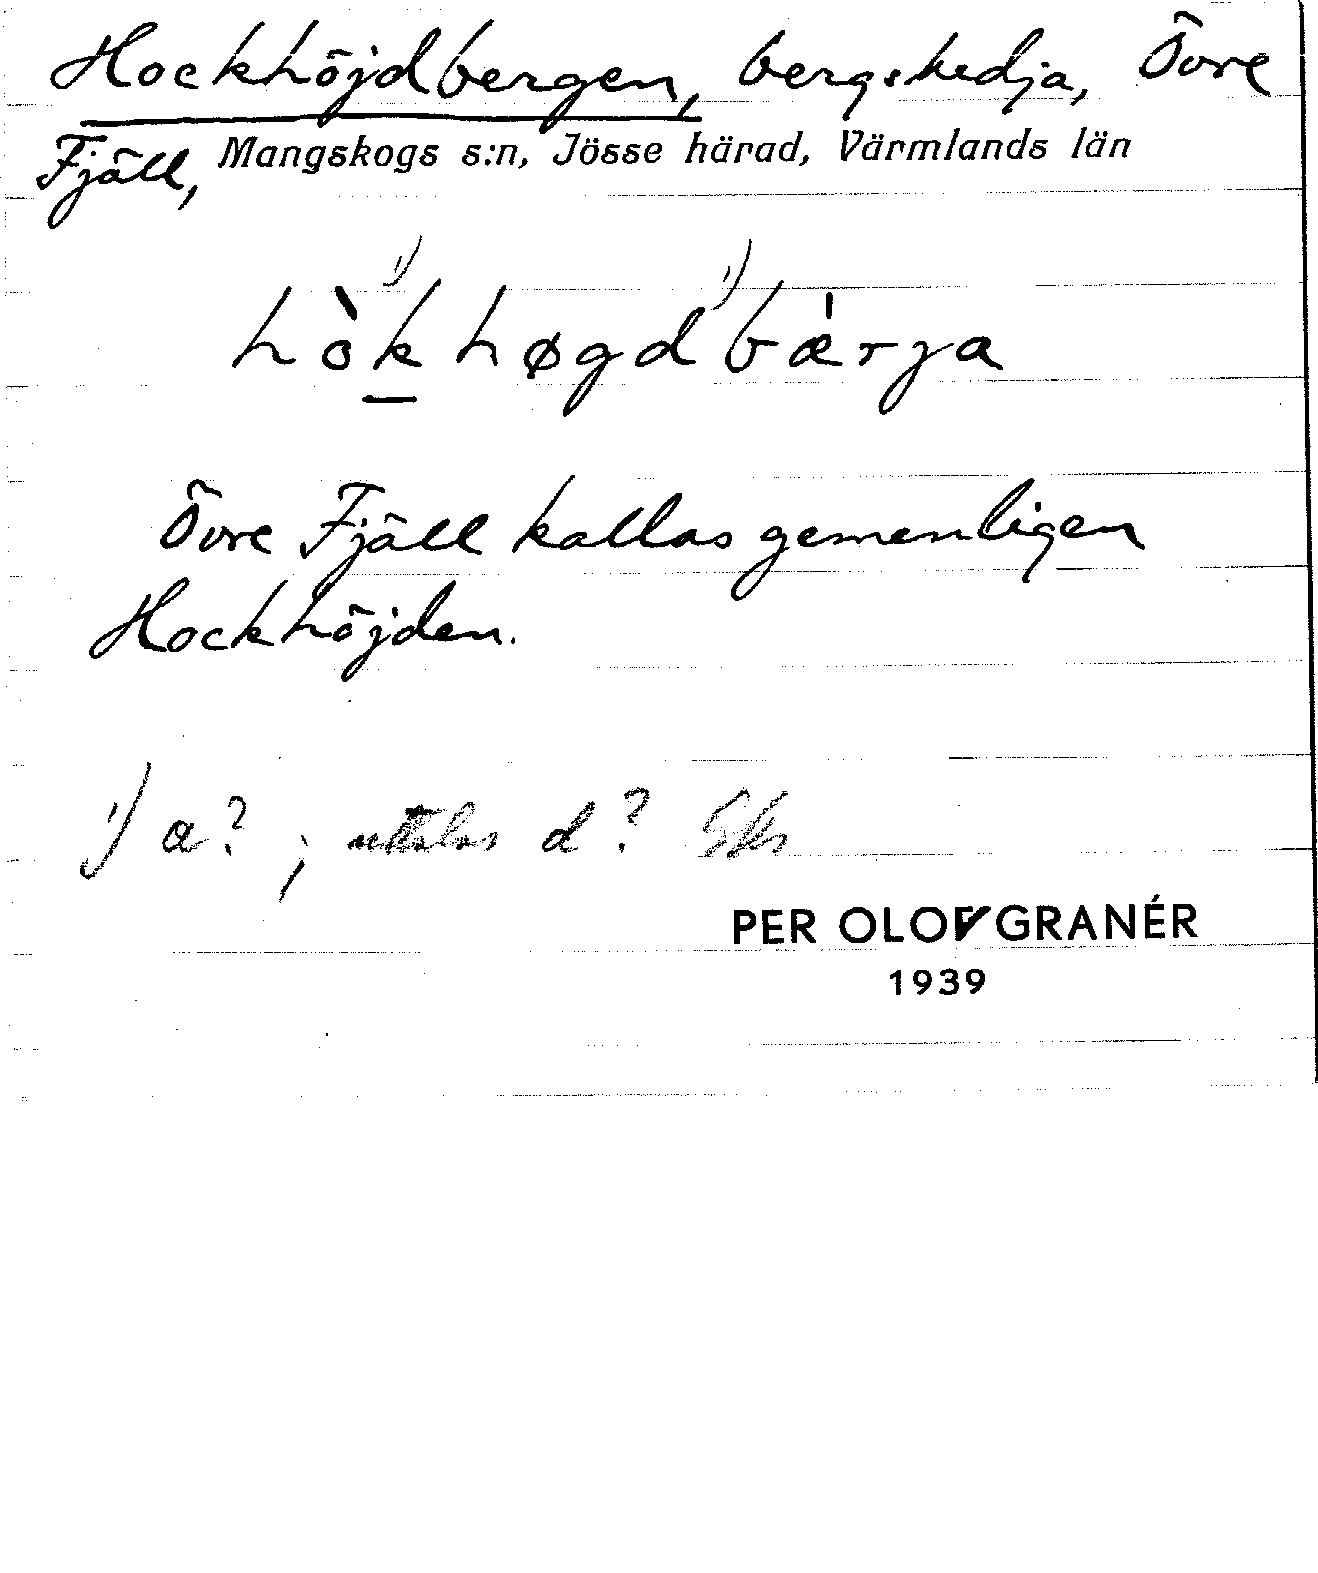 Hockhöjdbergen, bergskedja, Övre
Fjäll, Mangskogs s:n, Jösse härad, Värmlands län
1) 1)
hòkhøgdbærja
Övre Fjäll kallas gemenligen
Hockhöjden.
1) a? ; uttalas d?
PER OLOF GRANÉR
1939